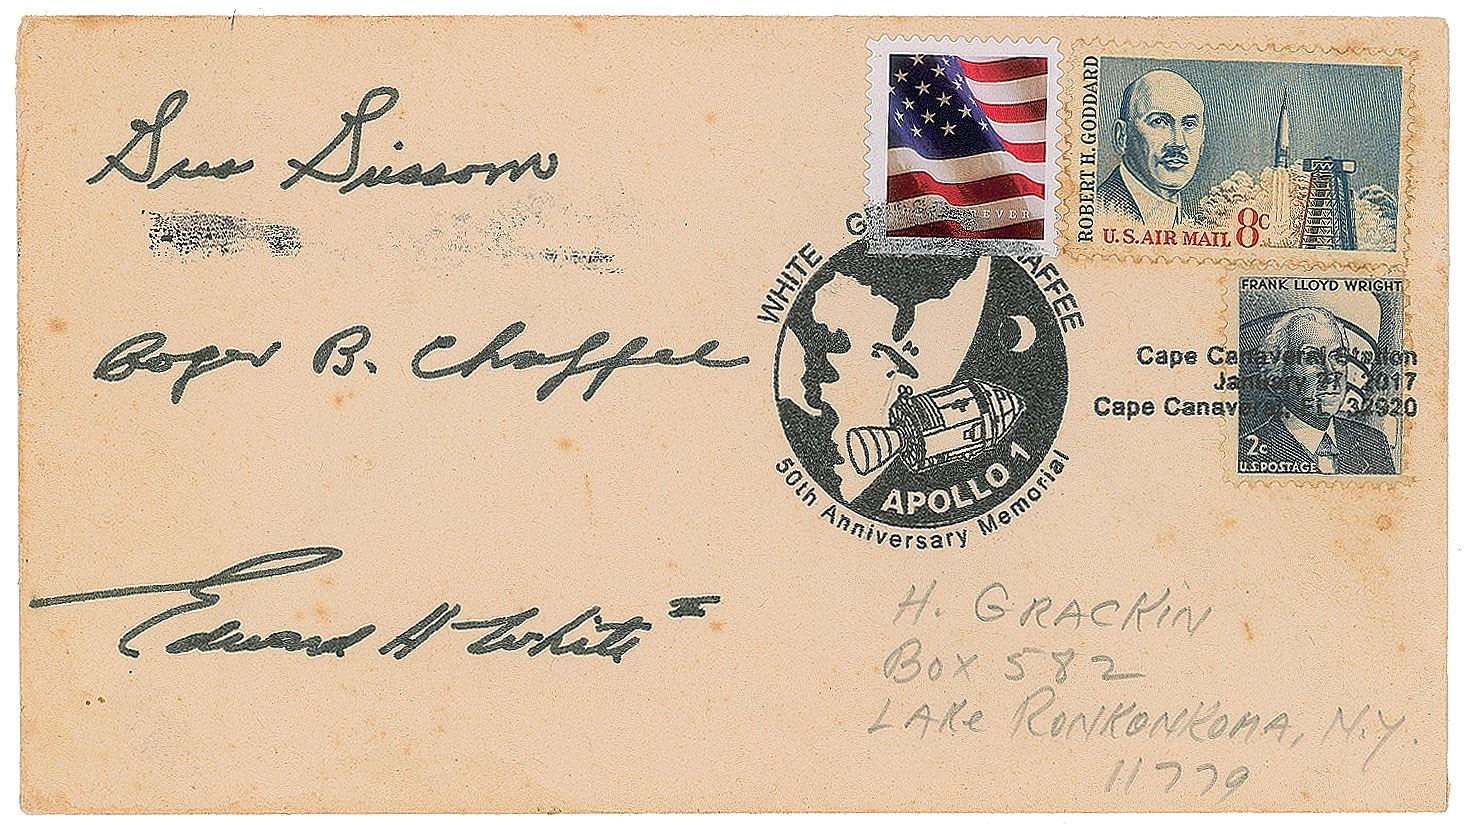 Gus Grissom
Roger B. Chaffee
Edward H White II
FOREVER
ROBERT H. GODDARD
U.S. AIR MAIL 8c
FRANK LLOYD WRIGHT
2c
U.S. POSTAGE
WHITE G AFFEE
APOLLO 1
50th Anniversary Memorial
Cape Canaveral Station
January 27, 2017
Cape Canaveral, FL 32920
H. GRACKIN
Box 582
LAKE RONKONKOMA, N.Y.
11779